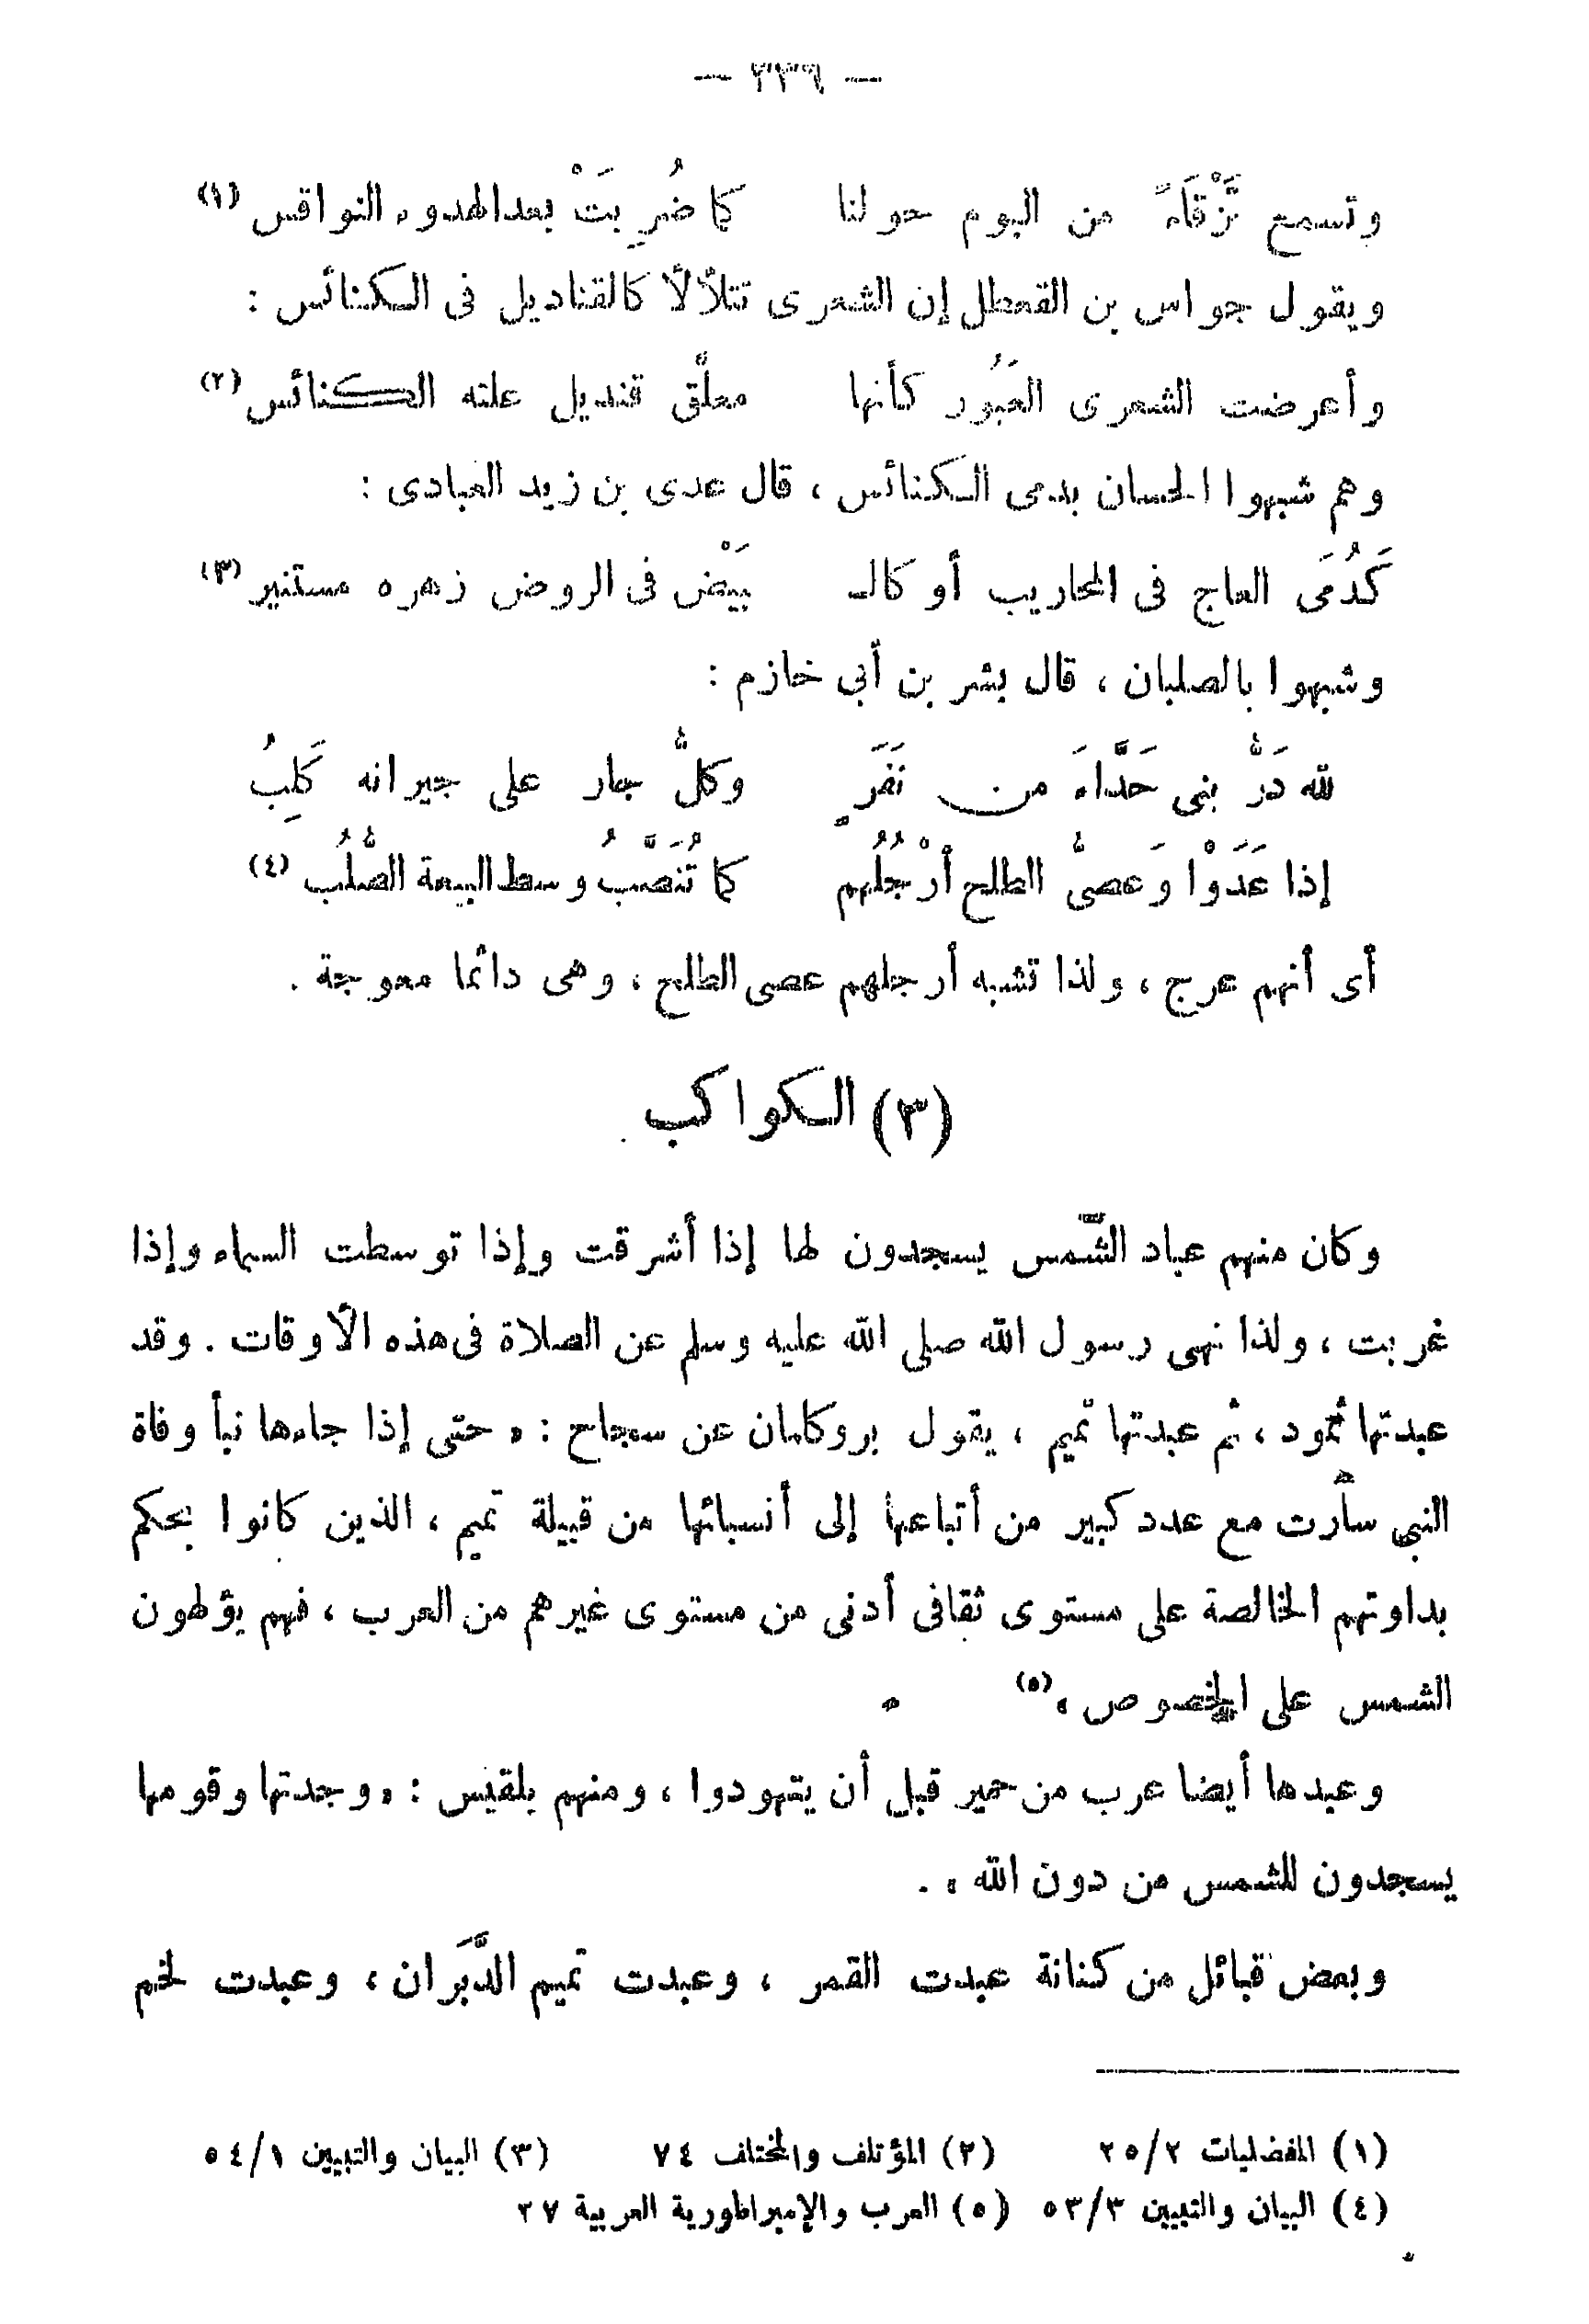 — ٣٣٦ —
وتسمع تَزْقَاءً من البوم حولنا كما ضُرِبَتْ بعد الهدوء النواقس (١)
ويقول جواس بن القعطل إن الشعرى تتلألأ كالقناديل فى الكنائس :
وأعرضت الشعرى العَبُور كأنها معلَّق قنديل علته الكنائس (٢)
وهم شبهوا الحسان بدمى الكنائس ، قال عدى بن زيد العبادى :
كَدُمَى العاج فى المحاريب أو كالـ بَيْض فى الروض زهره مستنير (٣)
وشبهوا بالصلبان ، قال بشر بن أبى خازم :
لله دَرُّ بنى حَدَّاءَ من نَفَرٍ وكلُّ جار على جيرانه كَلِبُ
إذا غَدَوْا وَعصىُّ الطلح أَرْجُلُهم كما تُنَصَّبُ وسط البيعة الصُّلُب (٤)
أى أنهم عرج ، ولذا تشبه أرجلهم عصى الطلح ، وهى دائما معوجة .
(٣) الكواكب
وكان منهم عباد الشَّمس يسجدون لها إذا أشرقت وإذا توسطت السماء وإذا
غربت ، ولذا نهى رسول الله صلى الله عليه وسلم عن الصلاة فى هذه الأوقات . وقد
عبدتها ثمود ، ثم عبدتها تميم ، يقول بروكلمان عن سجاح : « حتى إذا جاءها نبأ وفاة
النبى سارت مع عدد كبير من أتباعها إلى أنسبائها من قبيلة تميم ، الذين كانوا بحكم
بداوتهم الخالصة على مستوى ثقافى أدنى من مستوى غيرهم من العرب ، فهم يؤلهون
الشمس على الخصوص » (٥)
وعبدها أيضا عرب من حمير قبل أن يتهودوا ، ومنهم بلقيس : « وجدتها وقومها
يسجدون للشمس من دون الله » .
وبعض قبائل من كنانة عبدت القمر ، وعبدت تميم الدَّبَران ، وعبدت لخم
(١) المفضليات ٢/٢٥ (٢) المؤتلف والمختلف ٧٤ (٣) البيان والتبيين ١/٥٤
(٤) البيان والتبيين ٣/٥٣ (٥) العرب والإمبراطورية العربية ٢٧